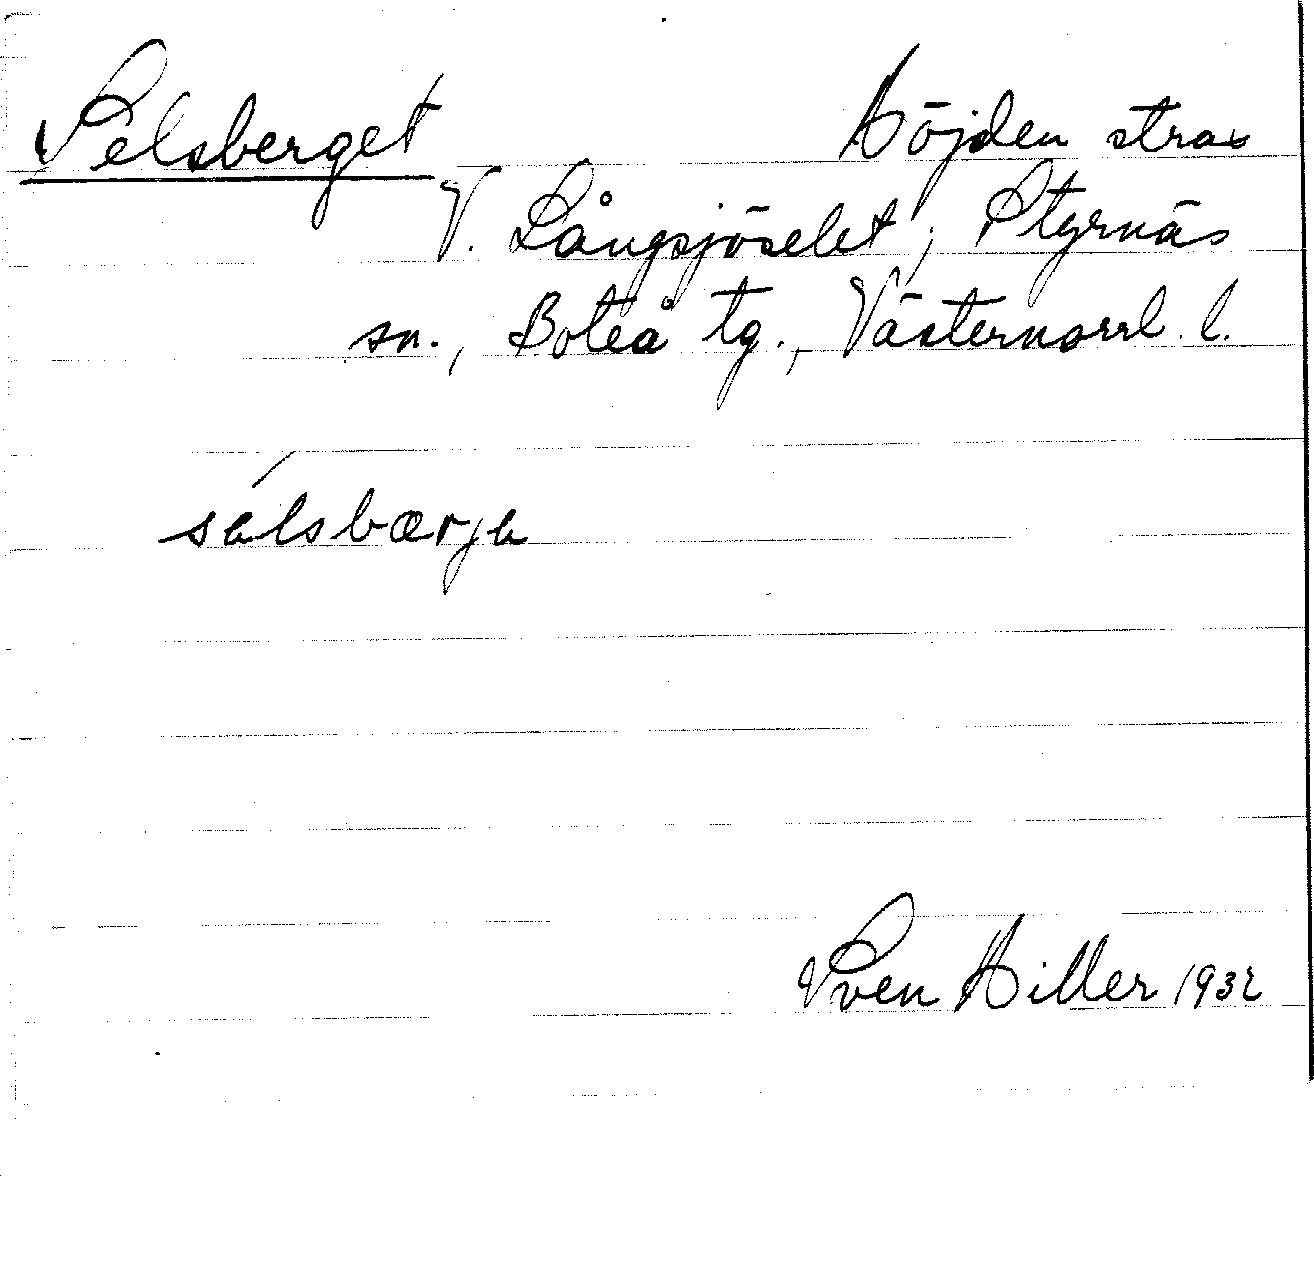 Selsberget Höjden strax
V. Långsjöselet, Styrnäs
sn., Boteå tg., Västernorrl. l.
sélsbærjə
Sven Hiller 1932